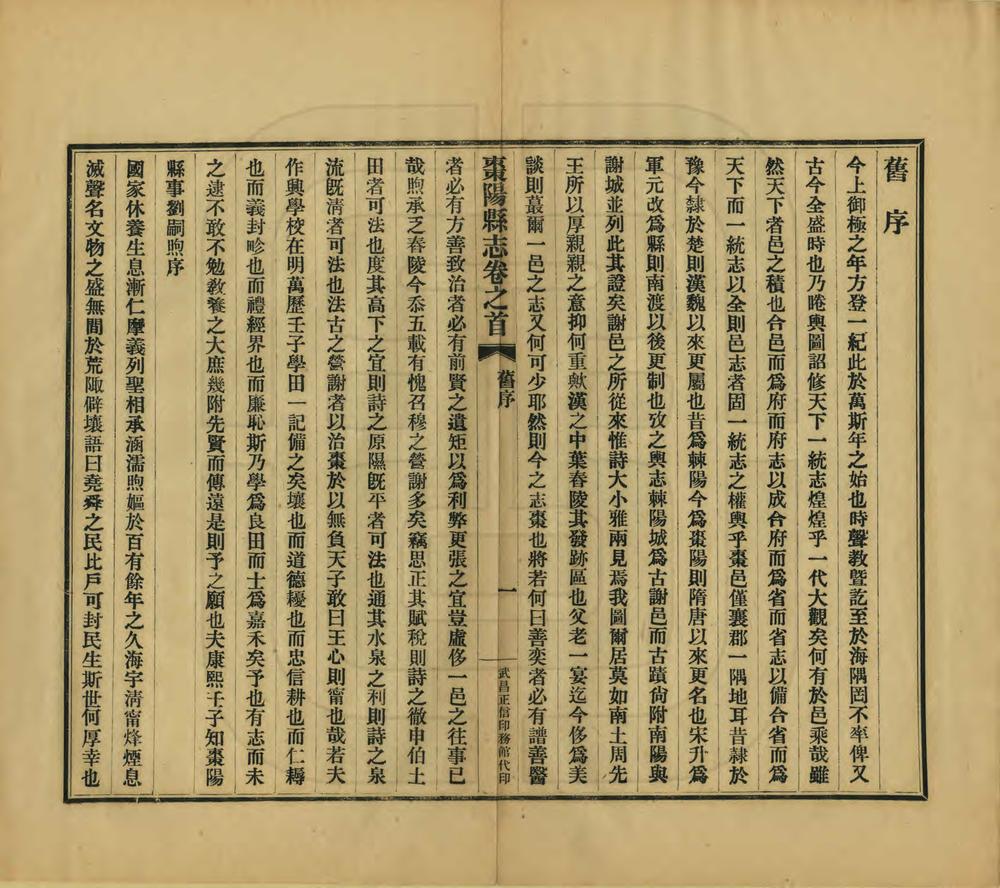 舊序
今上御極之年方登一紀此於萬斯年之始也時聲教暨訖至於海隅罔不率俾又
古今全盛時也乃睠輿圖詔修天下一統志煌煌乎一代大觀矣何有於邑乘哉雖
然天下者邑之積也合邑而爲府而府志以成合府而爲省而省志以備合省而爲
天下而一統志以全則邑志者固一統志之權輿乎棗邑僅襄郡一隅地耳昔隸於
豫今隸於楚則漢魏以來更屬也昔爲棘陽今爲棗陽則隋唐以來更名也宋升爲
軍元改爲縣則南渡以後更制也攷之輿志棘陽城爲古謝邑而古蹟尙附南陽與
謝城並列此其證矣謝邑之所從來惟詩大小雅兩見焉我圖爾居莫如南土周先
王所以厚親親之意抑何重歟漢之中葉舂陵其發跡區也父老一宴迄今侈爲美
談則蕞爾一邑之志又何可少耶然則今之志棗也將若何曰善奕者必有譜善醫
棗陽縣志卷之首
舊序
一
武昌正信印務館代印
者必有方善致治者必有前賢之遺矩以爲利弊更張之宜豈虛侈一邑之往事已
哉煦承乏舂陵今忝五載有愧召穆之營謝多矣竊思正其賦稅則詩之徹申伯土
田者可法也度其高下之宜則詩之原隰旣平者可法也通其水泉之利則詩之泉
流旣清者可法也法古之營謝者以治棗於以無負天子敢曰王心則甯也哉若夫
作興學校在明萬歷壬子學田一記備之矣壤也而道德耰也而忠信耕也而仁耨
也而義封畛也而禮經界也而廉恥斯乃學爲良田而士爲嘉禾矣予也有志而未
之逮不敢不勉教養之大庶幾附先賢而傳遠是則予之願也夫康熙壬子知棗陽
縣事劉嗣煦序
國家休養生息漸仁摩義列聖相承涵濡煦嫗於百有餘年之久海宇淸甯烽煙息
滅聲名文物之盛無間於荒陬僻壤語曰堯舜之民比戶可封民生斯世何厚幸也